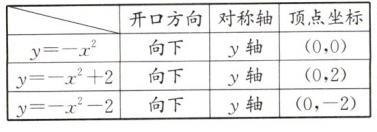 开口方向 对称轴 顶点坐标
y=-x² 向下 y轴 (0,0)
y=-x²+2 向下 y轴 (0,2)
y=-x²-2 向下 y轴 (0,-2)